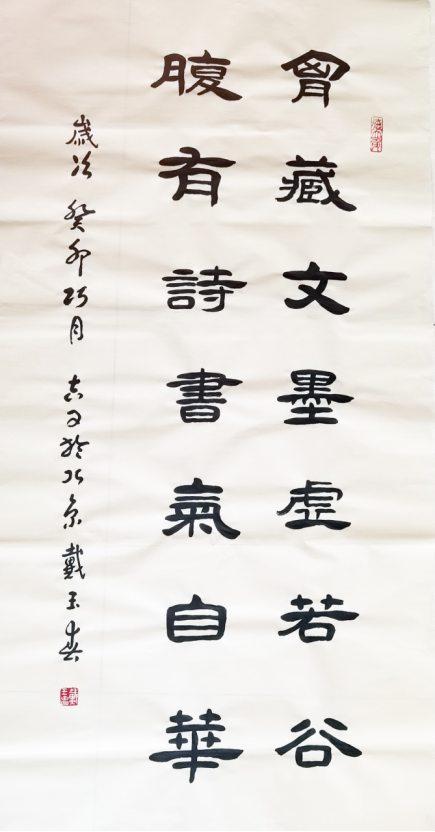 胷藏文墨虛若谷
腹有詩書氣自華
歲次癸卯巧月吉日於北京戴玉春